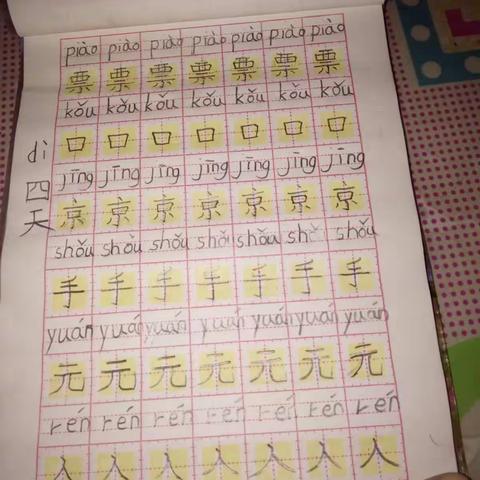 piào piào piào piào piào piào piào
票 票 票 票 票 票 票
kǒu kǒu kǒu kǒu kǒu kǒu kǒu
口 口 口 口 口 口 口
jīng jīng jīng jīng jīng jīng jīng
京 京 京 京 京 京 京
shǒu shǒu shǒu shǒu shǒu shǒu shǒu
手 手 手 手 手 手 手
yuán yuán yuán yuán yuán yuán yuán
元 元 元 元 元 元 元
rén rén rén rén rén rén rén
人 人 人 人 人 人 人
dì
四
天